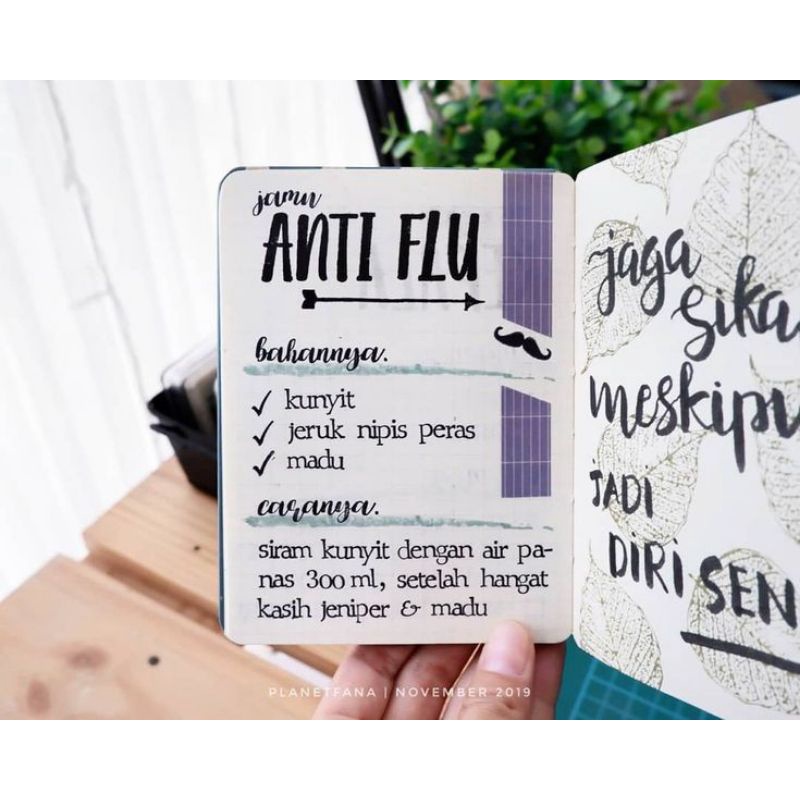 jamu
ANTI FLU
bahannya.
✓ kunyit
✓ jeruk nipis peras
✓ madu
caranya.
siram kunyit dengan air pa-
nas 300 ml, setelah hangat
kasih jeniper & madu
jaga
sika
meskipu
JADI
DIRI SEN
PLANETFANA | NOVEMBER 2019